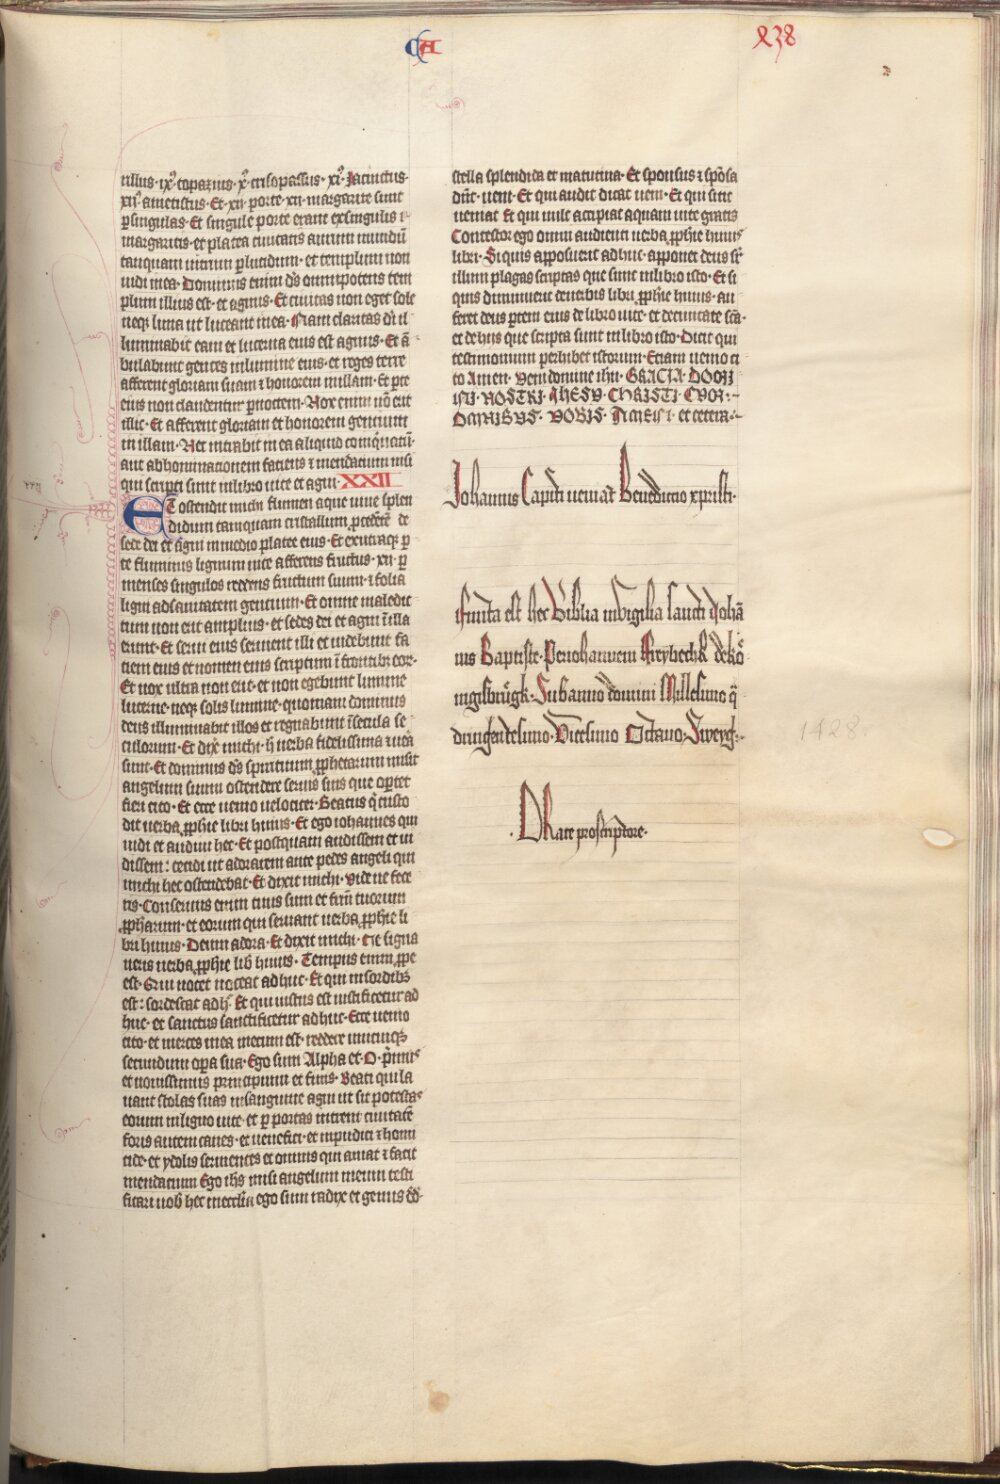 CA
238
rillus · ixº topazius · xº crisopassus · xiº Jacinctus ·
xiiº ametistus · Et · xii porte · xii · margarite sunt
p singulas · Et singule porte erant exsingulis i
margaritis · et platea ciuitatis aurum mundū
tanquam uitrum plucidum · et templum non
uidi inea · Dominus enim dꝰs omnipotens tem
plum illius est · et agnus · Et ciuitas non eget sole
neqꝫ luna ut luceant inea · Nam claritas di il
luminabit eam et lucerna eius est agnus · Et ā
bulabunt gentes inlumine eius · et reges terre
afferent gloriam suam ⁊ honorem inillam · Et pte
eius non claudentur pnoctem · Nox enim nō erit
illic · Et afferent gloriam et honorem gentium
in illam · Nec intrabit in ea aliquid coinqnatū ·
aut abhominationem faciens ⁊ mendacium nisi
qui scripti sunt inlibro uite et agni · XXII
ET ostendit michi flumen aque uiue splen
didum tamquam cristallum pcedētē de
sede dei et agni inmedio platee eius · Et exutraqꝫ p
te fluminis lignum uite afferens fructus · xii · p
menses singulos reddens fructum suum · ⁊ folia
ligni adsanitatem gentium · Et omne maledic
tum non erit amplius · et sedes dei et agni ī illa
erunt · Et serui eius seruient illi et uidebunt fa
ciem eius et nomen eius scriptum ī frontibꝫ eoꝝ ·
Et nox ultra non erit · et non egebunt lumine
lucerne · neqꝫ solis lumine · quoniam dominus
deus illuminabit illos et regnabunt īsecula se
culorum · Et dixͭ michi · h̄ uerba fidelissima ⁊ ueā
sunt · Et dominus dꝰs spirituum pphetarum misit
angelum suum ostendere seruis suis que oportet
fieri cito · Et ecce uenio uelociter · Beatus q̄ custo
dit uerba pphie libri huius · Et ego iohannes qui
uidi et audiui hec · Et postquam audissem et ui
dissem : cecidi ut adorarem ante pedes angeli qui
michi hec ostendebat · Et dixit michi · Vide ne fece
ris · Conseruus enim tuus sum et frūm tuorum
ppharum · et eorum qui seruant uerba pphie li
bri huius · Deum adora · Et dixit michi · Ne signa
ueris uerba pphie libri huius · Tempus enim ppe
est · Qui nocet noceat adhuc · Et qui insordibꝫ
est : sordescat adh̄ · Et qui iustus est iustificetur ad
huc · et sanctus sanctificetur adhuc · Ecce uenio
cito · et merces mea mecum est · reddere unicuiqꝫ
secundum opa sua · Ego sum Alpha et · O · pmus
et nouissimus principium et finis · Beati qui la
uant stolas suas insanguine agni ut sit potestas
eorum inligno uite · et p portas intrent ciuitatē
foris autem canes · et uenefici · et inpudici ⁊ homi
cide · et ydolis seruientes et omnis qui amat ⁊ facit
mendacium Ego ihs misi angelum meum testi
ficari uob̄ hec inecclīa ego sum radix et genus dd̄ ·
stella splendida et matutina · Et sponsus ⁊ spōsa
dn̄t · ueni · Et qui audit dicat ueni · Et qui sitit
ueniat Et qui uult accipiat aquam uite gratis
Contestor ego omni audienti uerba pphie huius
libri · Si quis apposuerit adhuc · apponet deus sr̄
illum plagas scriptas que sunt inlibro isto · Et si
quis diminuerit deuerbis libri pphie huius · au
feret deus ptem eius de libro uite · et deciuitate scā ·
et dehijs que scripta sunt inlibro isto · Dicit qui
testimonium perhibet istorum · Etiam uenio ci
to Amen · Veni domine ihu · GRACIA · DOMI
NI · NOSTRI · IHESV · CHRISTI · CVM :~
OMNIBVS · VOBIS · AMEN · et cetera :~
Johannis Capiti ueniat Benedictio xpristi ·
ifinita est hec Biblia invigilia sancti Johā
nis Baptiste · Periohannem Freybeck dekö
nigsbrügk · Subanno domini Millesimo q̄
dringentesimo · Vicesimo Octauo · Sweyg :~
1428 ·
· ORate proscriptore ·